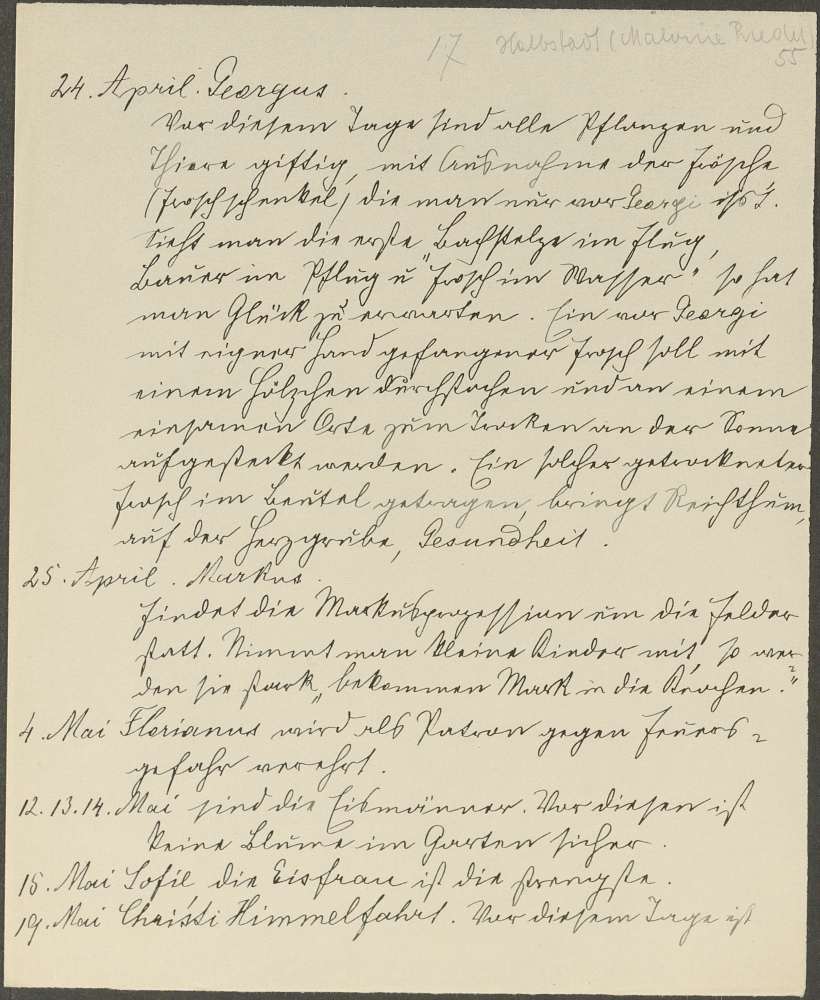 17 Halbstadt (Malwine Riedel)
55
24. April. Georgus.
Vor diesem Tage sind alle Pflanzen und
Thiere giftig, mit Ausnahme der Frösche
(Froschschenkel) die man nur vor Georgi ißt.
Sieht man die erste Bachstelze im Flug,
Bauer im Pflug u "Frosch im Wasser" so hat
man Glück zu erwarten. Ein vor Georgi
mit eigner Hand gefangener Frosch soll mit
einem Hölzchen durchstochen und an einem
einsamen Orte zum Trocken an der Sonne
aufgesteckt werden. Ein solcher getrockneter
Frosch im Beutel getragen, bringt Reichthum,
auf der Herzgrube, Gesundheit.
25. April. Markus.
Findet die Markusprozession um die Felder
statt. Nimmt man kleine Kinder mit, so wer-
den sie stark, „bekommen Mark in die Knochen."
4. Mai Florianus wird als Patron gegen Feuers-
gefahr verehrt.
12. 13. 14. Mai sind die Eismänner. Vor diesen ist
keine Blume im Garten sicher.
15. Mai Sofie die Eisfrau ist die strengste.
19. Mai Christi Himmelfahrt. Vor diesem Tage ist